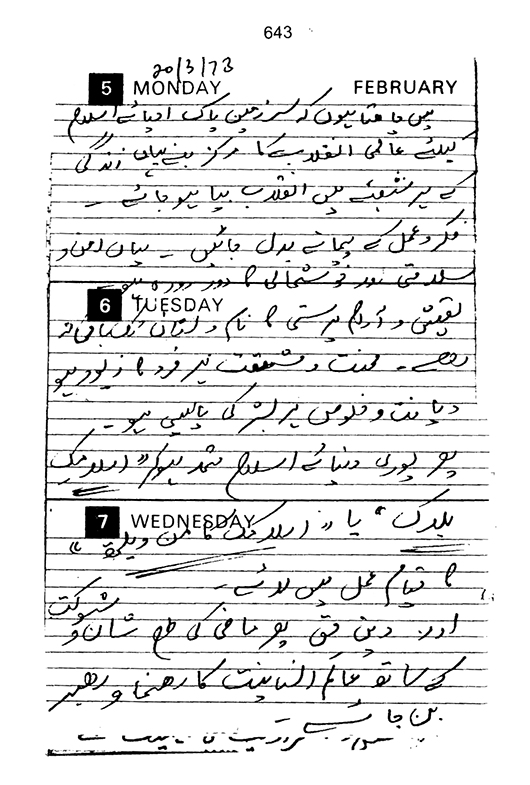 643
20/3/73
5 MONDAY FEBRUARY
میں چاہتا ہوں کہ سرزمین پاک احیائے اسلام
کیلئے عالمی انقلاب کا مرکز بنے یہاں زندگی
کے ہر شعبے میں انقلاب بپا ہو جائے ۔
فکر و عمل کے پیمانے بدل جائیں ۔ یہاں امن و
سلامتی اور خوشحالی کا دور دورہ ہو ۔
6 TUESDAY
تعیش و آرام پرستی کا نام و نشان تک باقی نہ
رہے ۔ محنت و مشقت ہر فرد کا زیور ہو
دیانت و خلوص ہر بشر کی پالیسی ہو ۔
پھر پوری دنیائے اسلام متحد ہوکر "اسلامک
7 WEDNESDAY
بلاک" یا "اسلامک کامن ویلتھ"
کا قیام عمل میں لائے ۔
اور دین حق پھر ماضی کی طرح شان و شوکت
کے ساتھ عالم انسانیت کا رہنما و رہبر
بن جائے